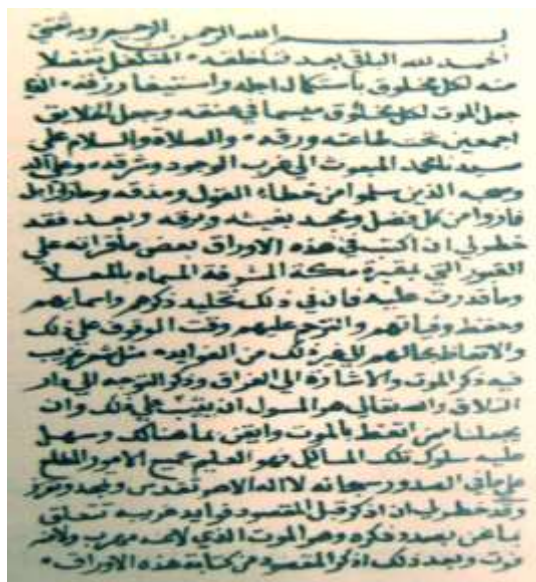 بسم الله الرحمن الرحيم وبه ثقتي
الحمد لله الباقي بعد فناء خلقه المتكفل تفضلا
منه لكل مخلوق باستكمال اجله واستيفا رزقه الذي
جعل الموت لكل مخلوق ميسما في عنقه وجعل الخلايق
اجمعين تحت طاعته ورقه والصلاة والسلام على
سيدنا محمد المبعوث الى غرب الوجود وشرقه وعلى اله
وصحبه الذين سلموا من خطاء القول ومذقه
فازوا من كل فضل ومجد بغيثه وبرقه وبعد فقد
خطر لي ان اكتب في هذه الاوراق بعض ما قراته على
القبور التي بمقبرة مكة المشرفة المسماه بالمعلا
وما قدرت عليه فان في ذلك تخليد ذكرهم واسمايهم
وحفظ وفياتهم والترحم عليهم وقت الوقوف على ذلك
والاتعاظ بحالهم الى غير ذلك من الفوايد مثل شعر غريب
فيه ذكر الموت والاشارة الى الفراق وذكر التوجه الى دار
التلاق والله تعالى هو المسول ان يثيب على ذلك وان
يجعلنا ممن اتعظ بالموت وايقن بما هنالك وسهل
عليه سلوك تلك المسالك فهو العليم بجميع الامور المطلع
على ما في الصدور سبحانه لا اله الا هو تقدس وتمجد وتعزز
وقد خطر لي ان اذكر قبل المقصود فوايد غريبه تتعلق
بما نحن بصدده وذكره وهو الموت الذي لا مهرب ولا
وبعد ذلك اذكر المقصود من كتابة هذه الاوراق